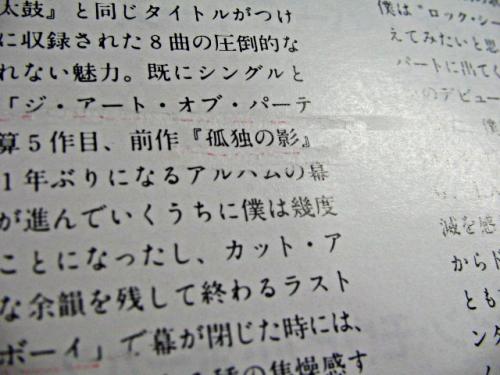 太鼓』と同じタイトルがつけ
に収録された8曲の圧倒的な
れない魅力。既にシングルと
「ジ・アート・オブ・パーテ
算5作目、前作『孤独の影』
1年ぶりになるアルバムの幕
が進んでいくうちに僕は幾度
ことになったし、カット・ア
な余韻を残して終わるラスト
ボーイ」で幕が閉じた時には、
の焦燥感す
僕は"ロック・シー
えてみたいと思
パートに出てく
のデビュー
僕
滅を感
からド
とも
ンタ